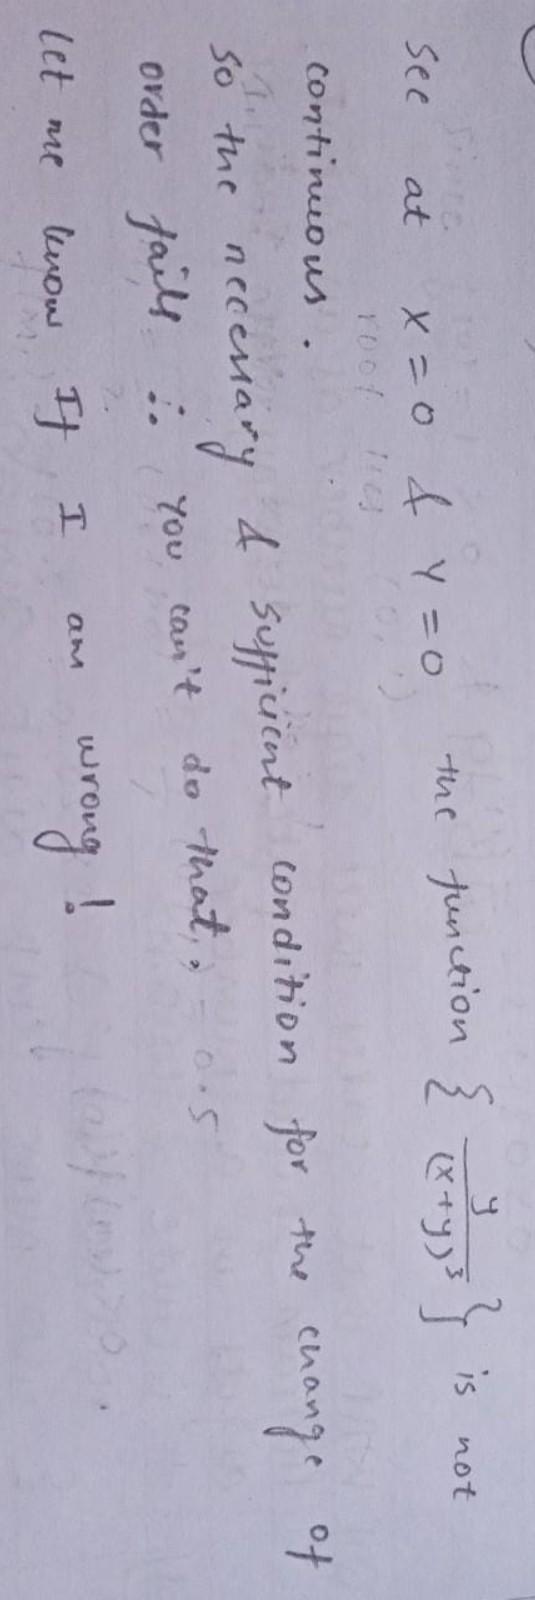 See at x=0 & y=0 the function { y/(x+y)³ } is not
continuous.
so the necessary & sufficient condition for the change of
order fails ∴ You can't do that.
Let me know If I am wrong!